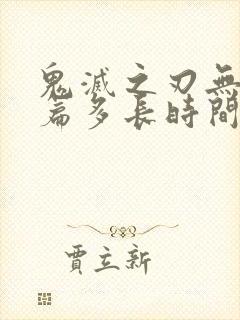 鬼滅之刃無
篇多長時間
賈立新